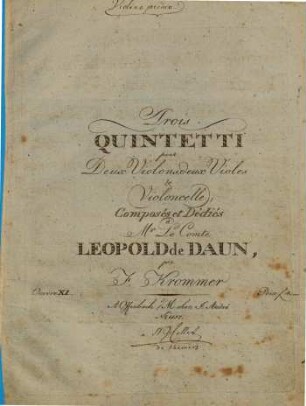 Violino primo
Trois
QUINTETTI
pour
Deux Violons, deux Violes
&
Violoncelle,
Composés et Dédiés
à
Mr. Le Comte
LEOPOLD de DAUN,
par
F. Krommer
Oeuvre XI.
A Offenbach s/M. chez J. André